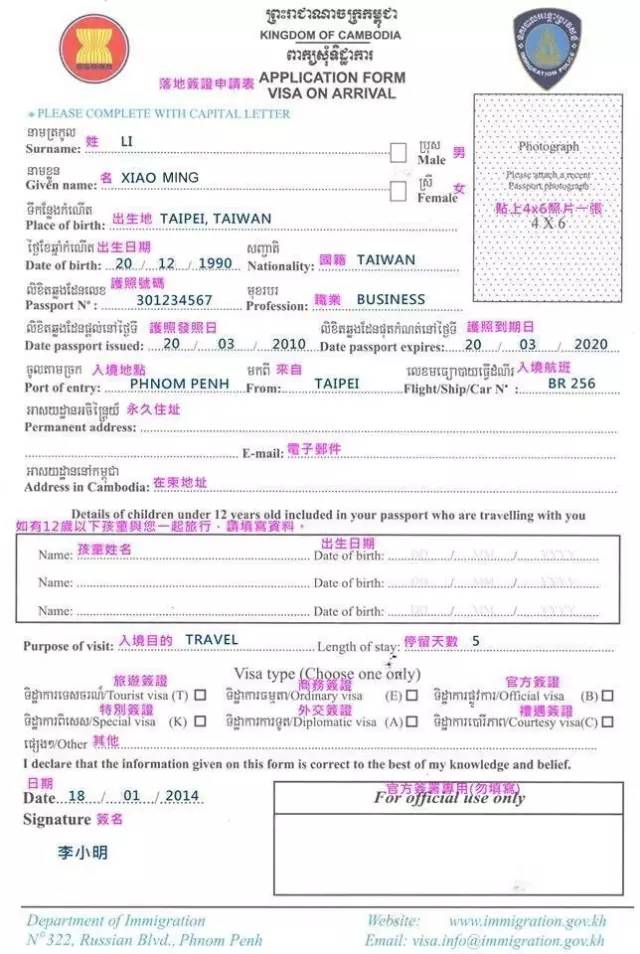 ព្រះរាជាណាចក្រកម្ពុជា
KINGDOM OF CAMBODIA
ពាក្យសុំទិដ្ឋាការ
落地簽證申請表 APPLICATION FORM
VISA ON ARRIVAL
IMMIGRATION POLICE
* PLEASE COMPLETE WITH CAPITAL LETTER
នាមត្រកូល
Surname: 姓 LI
ប្រុស
Male 男
នាមខ្លួន
Given name: 名 XIAO MING
ស្រី
Female 女
Photograph
Please attach a recent
Passport photograph
貼上4x6照片一張
4 X 6
ទីកន្លែងកំណើត
Place of birth: 出生地 TAIPEI, TAIWAN
ថ្ងៃខែឆ្នាំកំណើត 出生日期 សញ្ជាតិ
Date of birth: 20 / 12 / 1990 Nationality: 國籍 TAIWAN
លិខិតឆ្លងដែនលេខ 護照號碼 មុខរបរ
Passport Nº : 301234567 Profession: 職業 BUSINESS
លិខិតឆ្លងដែនផ្តល់នៅថ្ងៃទី 護照發照日 លិខិតឆ្លងដែនផុតកំណត់នៅថ្ងៃទី 護照到期日
Date passport issued: 20 / 03 / 2010 Date passport expires: 20 / 03 / 2020
ចូលតាមច្រក 入境地點 មកពី 來自 លេខមធ្យោបាយធ្វើដំណើរ 入境航班
Port of entry: PHNOM PENH From: TAIPEI Flight/Ship/Car Nº : BR 256
អាសយដ្ឋានអចិន្ត្រៃយ៍ 永久住址
Permanent address:
E-mail: 電子郵件
អាសយដ្ឋាននៅកម្ពុជា
Address in Cambodia: 在柬地址
Details of children under 12 years old included in your passport who are travelling with you
如有12歲以下孩童與您一起旅行，請填寫資料。
出生日期
Name: 孩童姓名 Date of birth: DD / MM / YYYY
Name: Date of birth: DD / MM / YYYY
Name: Date of birth: DD / MM / YYYY
Purpose of visit: 入境目的 TRAVEL Length of stay: 停留天數 5
Visa type (Choose one only)
旅遊簽證 商務簽證 官方簽證
ទិដ្ឋាការទេសចរណ៍/Tourist visa (T) ទិដ្ឋាការធម្មតា/Ordinary visa (E) ទិដ្ឋាការផ្លូវការ/Official visa (B)
特別簽證 外交簽證 禮遇簽證
ទិដ្ឋាការពិសេស/Special visa (K) ទិដ្ឋាការការទូត/Diplomatic visa (A) ទិដ្ឋាការបរើភាព/Courtesy visa(C)
ផ្សេងៗ/Other 其他
I declare that the information given on this form is correct to the best of my knowledge and belief.
日期
Date 18 / 01 / 2014
官方簽署專用(勿填寫)
For official use only
Signature 簽名
李小明
Department of Immigration
Nº322, Russian Blvd., Phnom Penh
Website: www.immigration.gov.kh
Email: visa.info@immigration.gov.kh